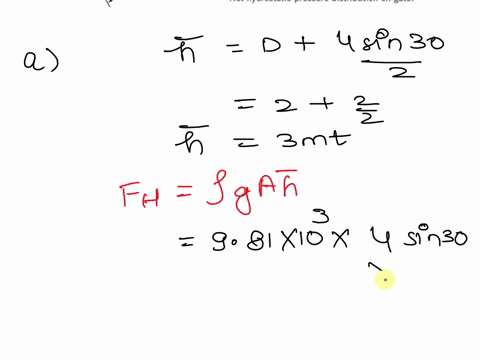 Net hydrostatic pressure distribution on gate.
a) h̄ = D + 4 sin 30 / 2
= 2 + 2/2
h̄ = 3mt
FH = ρgAh̄
= 9.81 × 10³ × 4 sin30